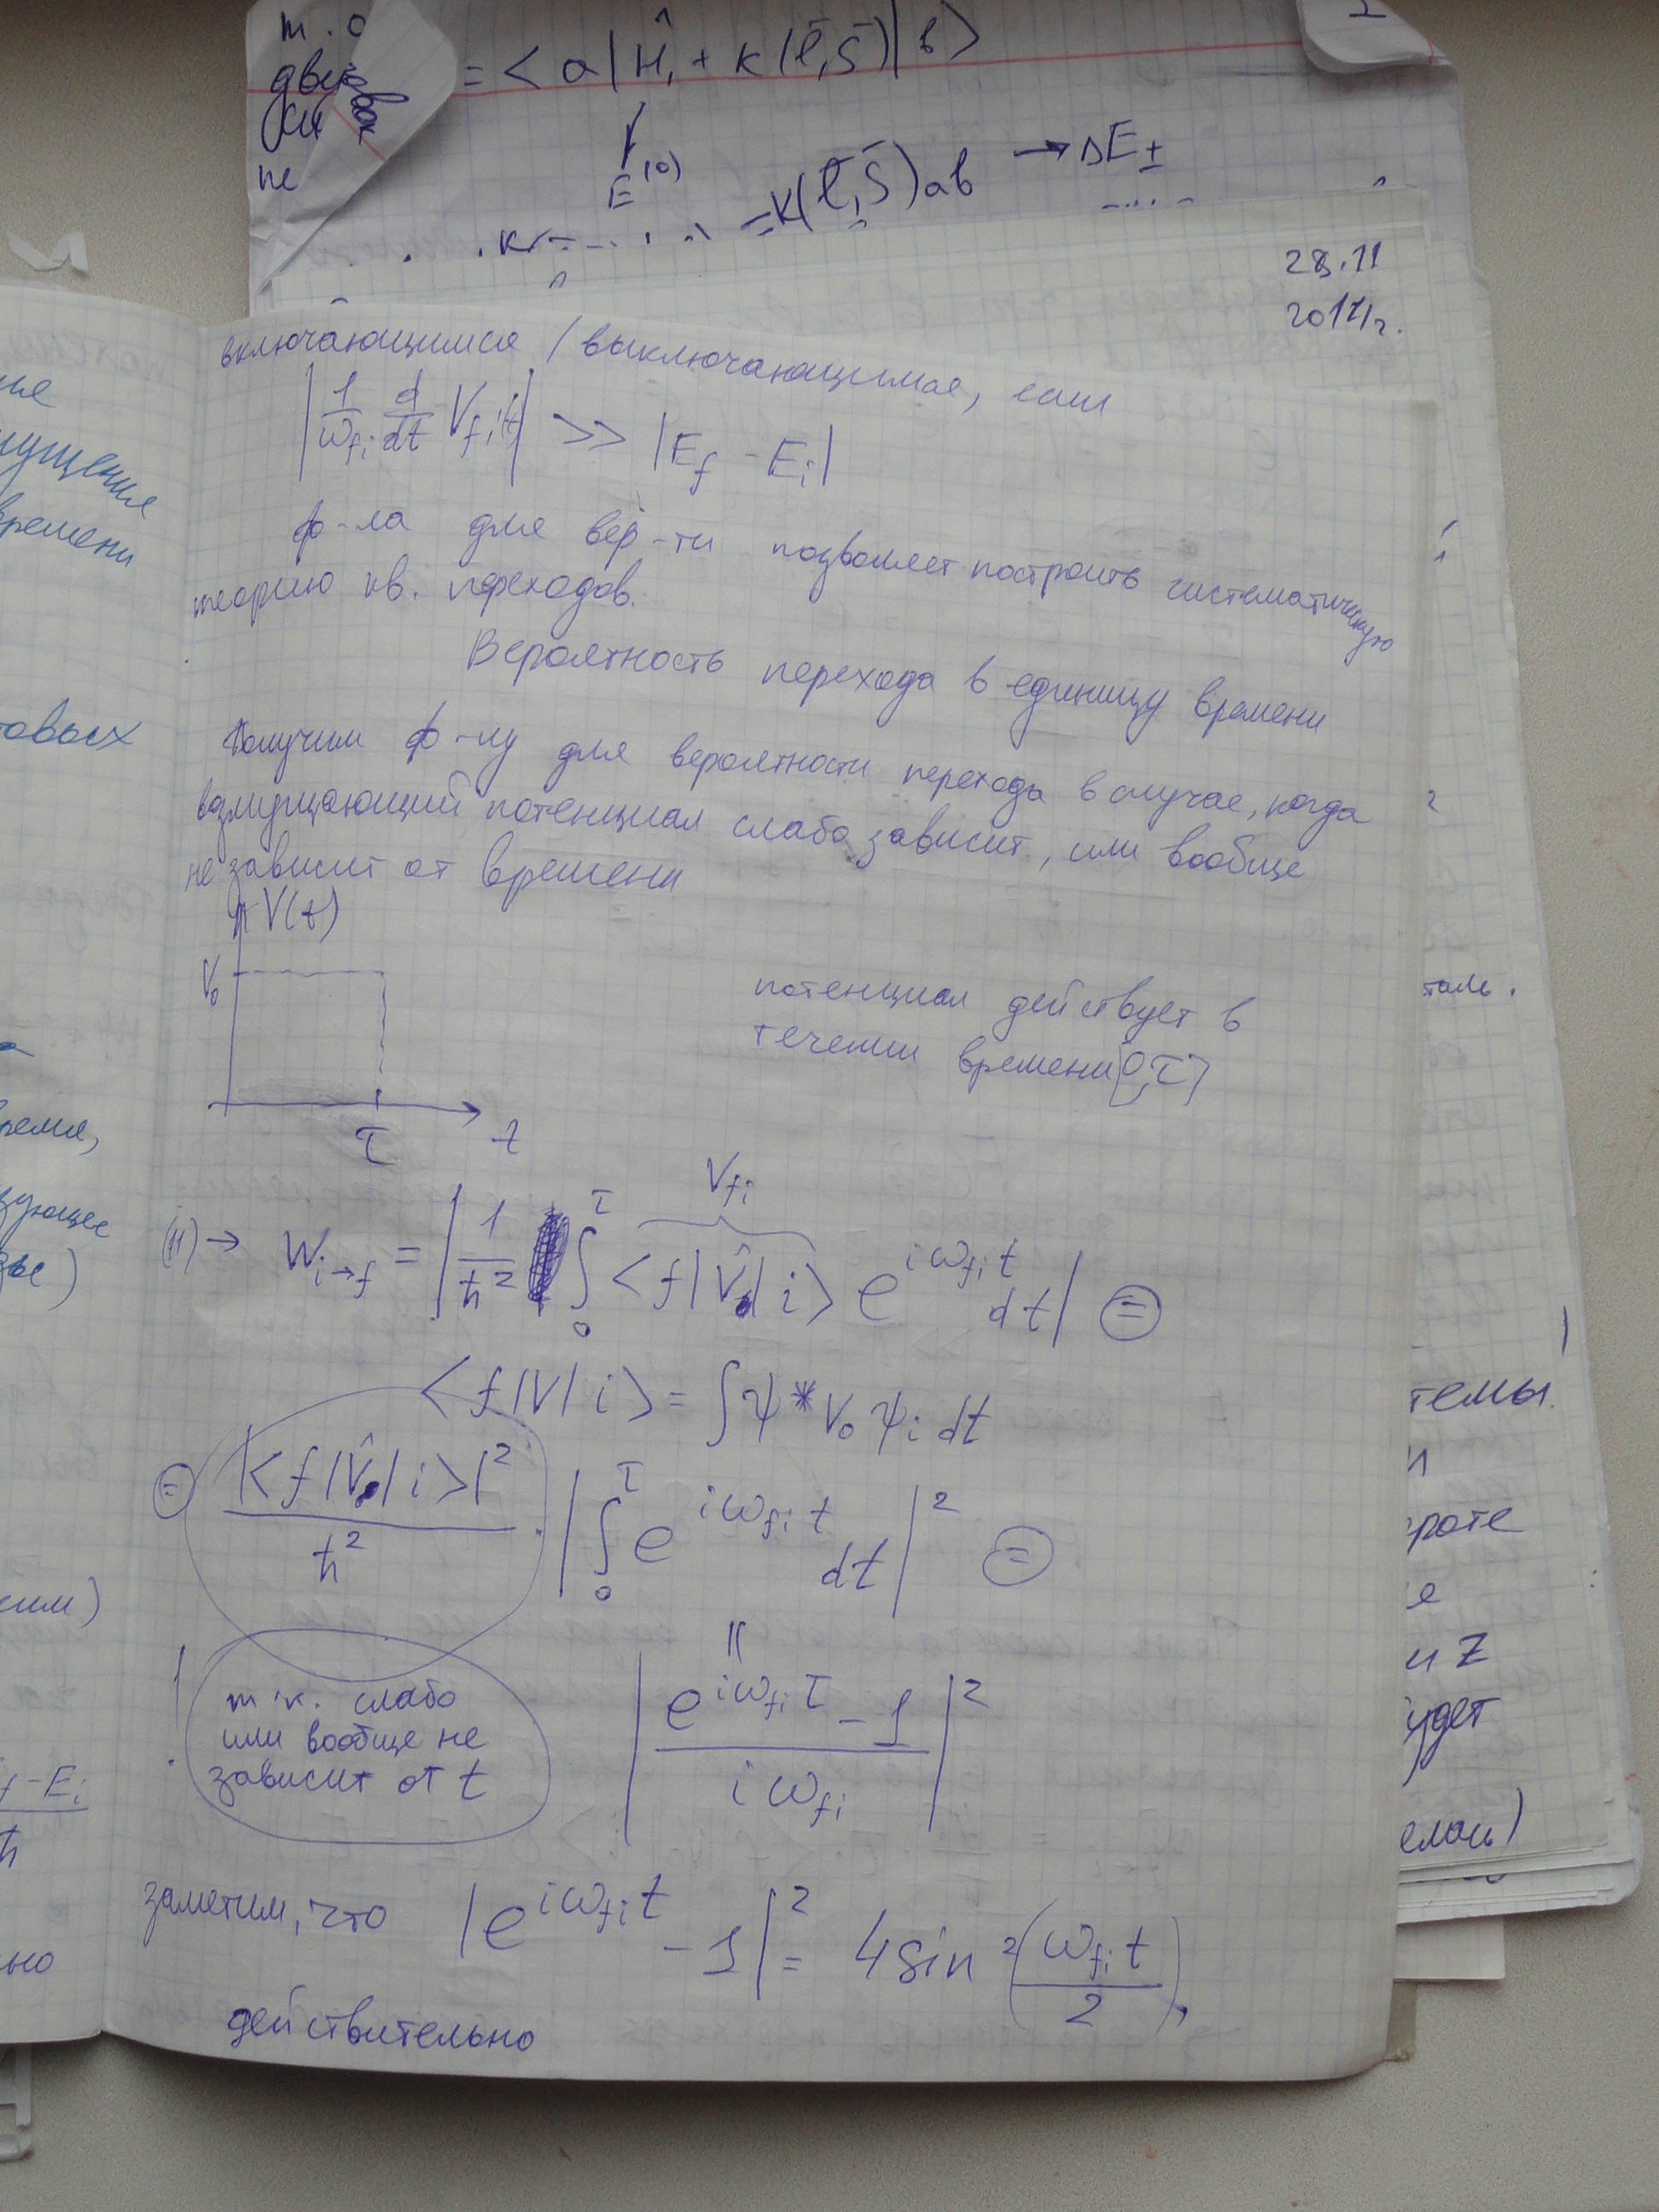 т.о
= < a | Ĥ₁ + к(l̄,s̄) | b >
не
E⁽⁰⁾
= к(l̄,s̄)ab → ΔE±
28.11
включающимся / выключающимся, если
| 1/ω_fi d/dt V_fi(t) | >> | E_f - E_i |
ф-ла для вер-ти позволяет построить систематическую
теорию кв. переходов.
Вероятность перехода в единицу времени
Получим ф-лу для вероятности перехода в случае, когда
возмущающий потенциал слабо зависит, или вообще
не зависит от времени
V(t)
V₀
τ t
потенциал действует в
течении времени [0,τ]
V_fi
(11) → W_i→f = | 1/ħ² ∫₀^τ < f | V̂ | i > e^{iω_fi t} dt | ⊜
< f | V | i > = ∫ψ* V₀ ψ_i dτ
⊜ |< f | V̂ | i >|² / ħ² · | ∫₀^τ e^{iω_fi t} dt |² ⊜
||
! т.к. слабо
или вообще не
зависит от t
| (e^{iω_fi τ} - 1) / (iω_fi) |²
заметим, что | e^{iω_fi t} - 1 |² = 4 sin² (ω_fi t / 2),
действительно
времени
овых
f - E_i
ħ
но
таль.
темы.
и
е
и Z